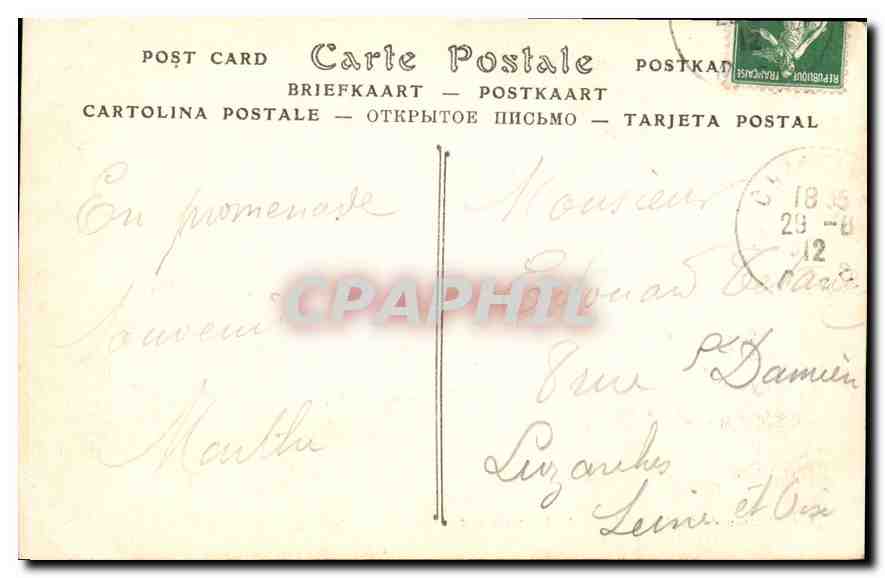 POST CARD Carte Postale POSTKA
BRIEFKAART — POSTKAART
CARTOLINA POSTALE — ОТКРЫТОЕ ПИСЬМО — TARJETA POSTAL
REPUBLIQUE FRANÇAISE
18
29 -8
12
En promenade
Souvenir
Marthe
Monsieur
Edouard
8 rue St Damien
Luzarches
Seine et Oise
CPAPHIL